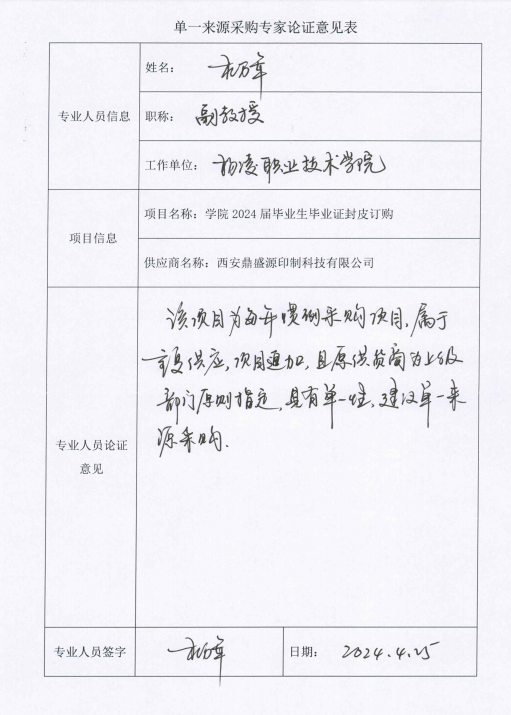 单一来源采购专家论证意见表
专业人员信息
姓名:
职称: 副教授
工作单位: 杨凌职业技术学院
项目信息
项目名称:学院 2024 届毕业生毕业证封皮订购
供应商名称:西安鼎盛源印制科技有限公司
专业人员论证
意见
该项目为每年惯例采购项目,属于
重复供应,项目追加,且原供货商为上级
部门原则指定,具有单一性,建议单一来
源采购.
专业人员签字
日期: 2024.4.25